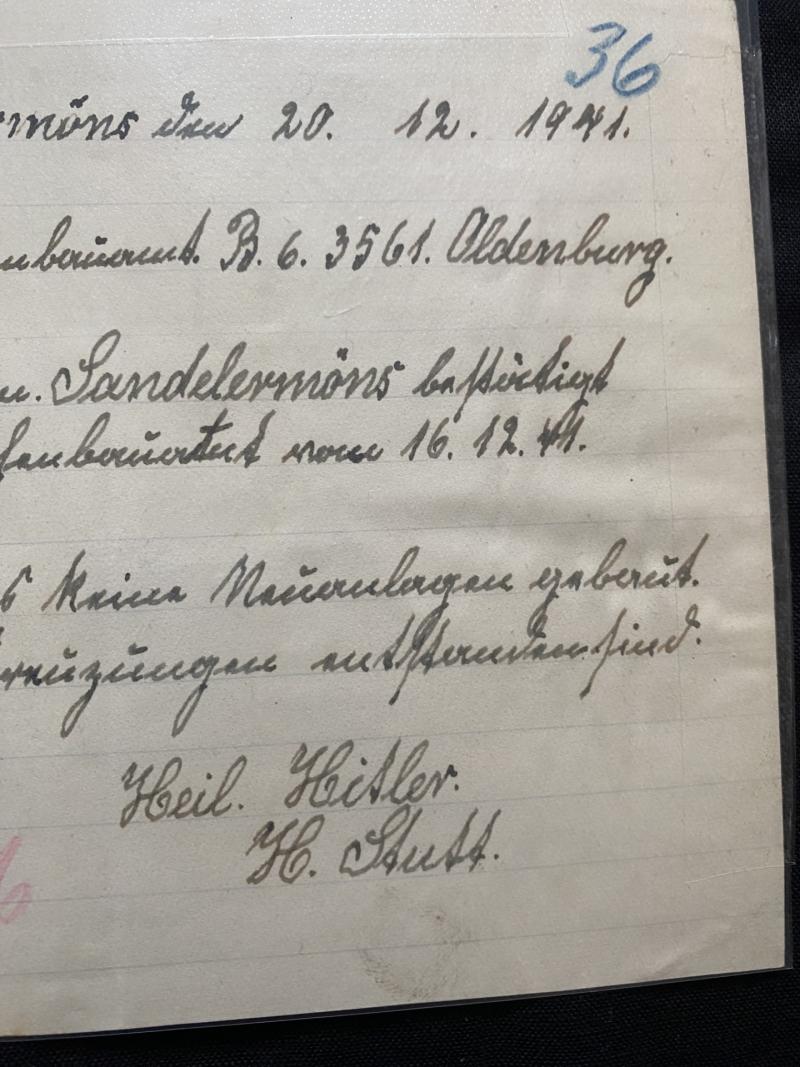 36
ermöns den 20. 12. 1941.
nbauamt. B. 6. 3561. Oldenburg.
n. Sandelermöns bestätigt
ßenbauamt vom 16. 12. 41.
s keine Neuanlagen gebaut.
reuzungen entstanden sind.
Heil. Hitler.
H. Stutt.